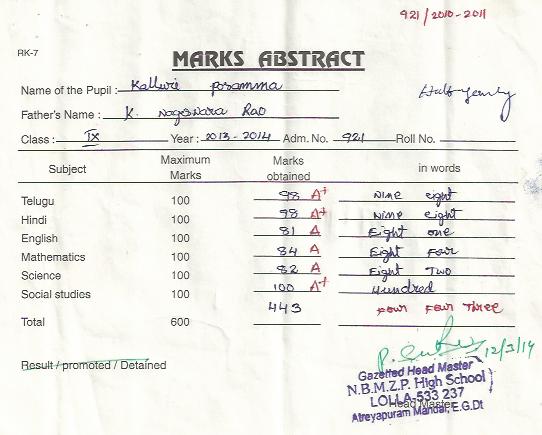 921/2010-2011
RK-7
MARKS ABSTRACT
Name of the Pupil : Kalluri Posamma
Half yearly
Father's Name : K. Nageswara Rao
Class : IX Year : 2013-2014 Adm. No. 921 Roll No.
Subject Maximum Marks Marks obtained in words
Telugu 100 98 A+ Nine eight
Hindi 100 98 A+ Nine eight
English 100 81 A Eight one
Mathematics 100 84 A Eight Four
Science 100 82 A Eight Two
Social studies 100 100 A+ Hundred
Total 600 443 Four Four Three
12/3/14
Result / promoted / Detained
Gazetted Head Master
N.B.M.Z.P. High School
LOLLA-533 237
Head Master
Atreyapuram Mandal, E.G.Dt